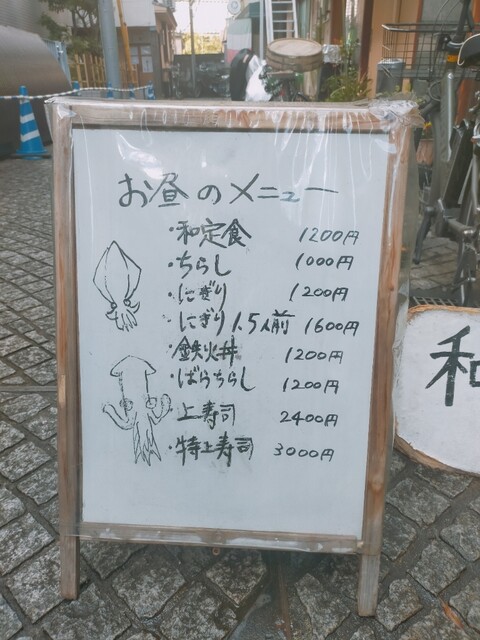 お昼のメニュー
・和定食 1200円
・ちらし 1000円
・にぎり 1200円
・にぎり1.5人前 1600円
・鉄火丼 1200円
・ばらちらし 1200円
・上寿司 2400円
・特上寿司 3000円
和